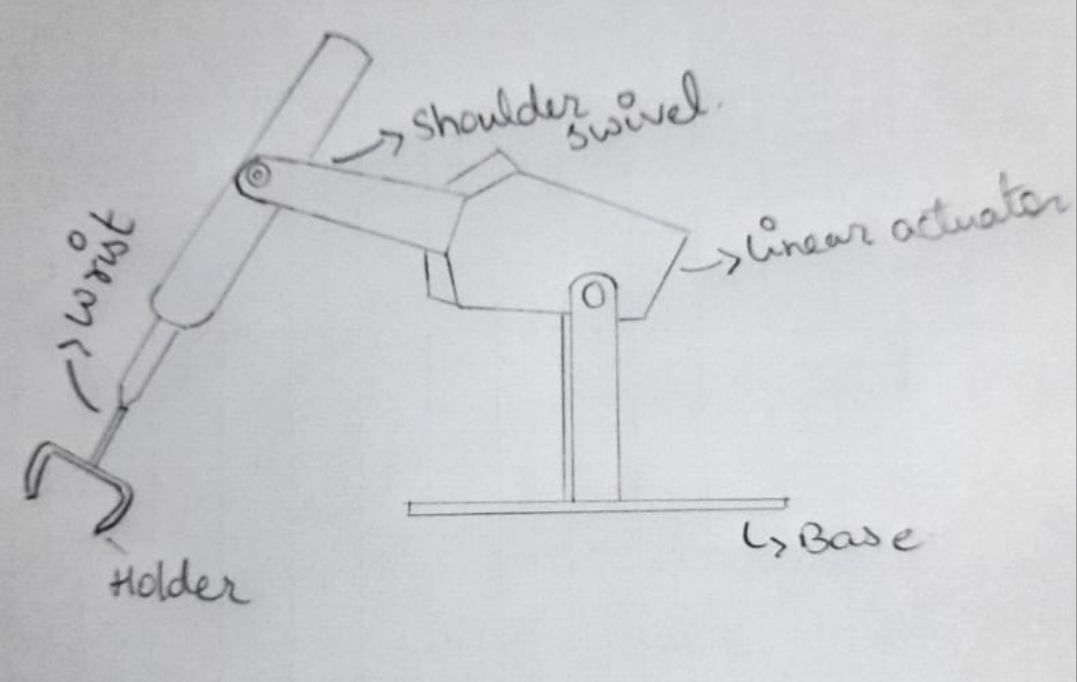 Shoulder
swivel.
Linear actuator
Wrist
Base
Holder